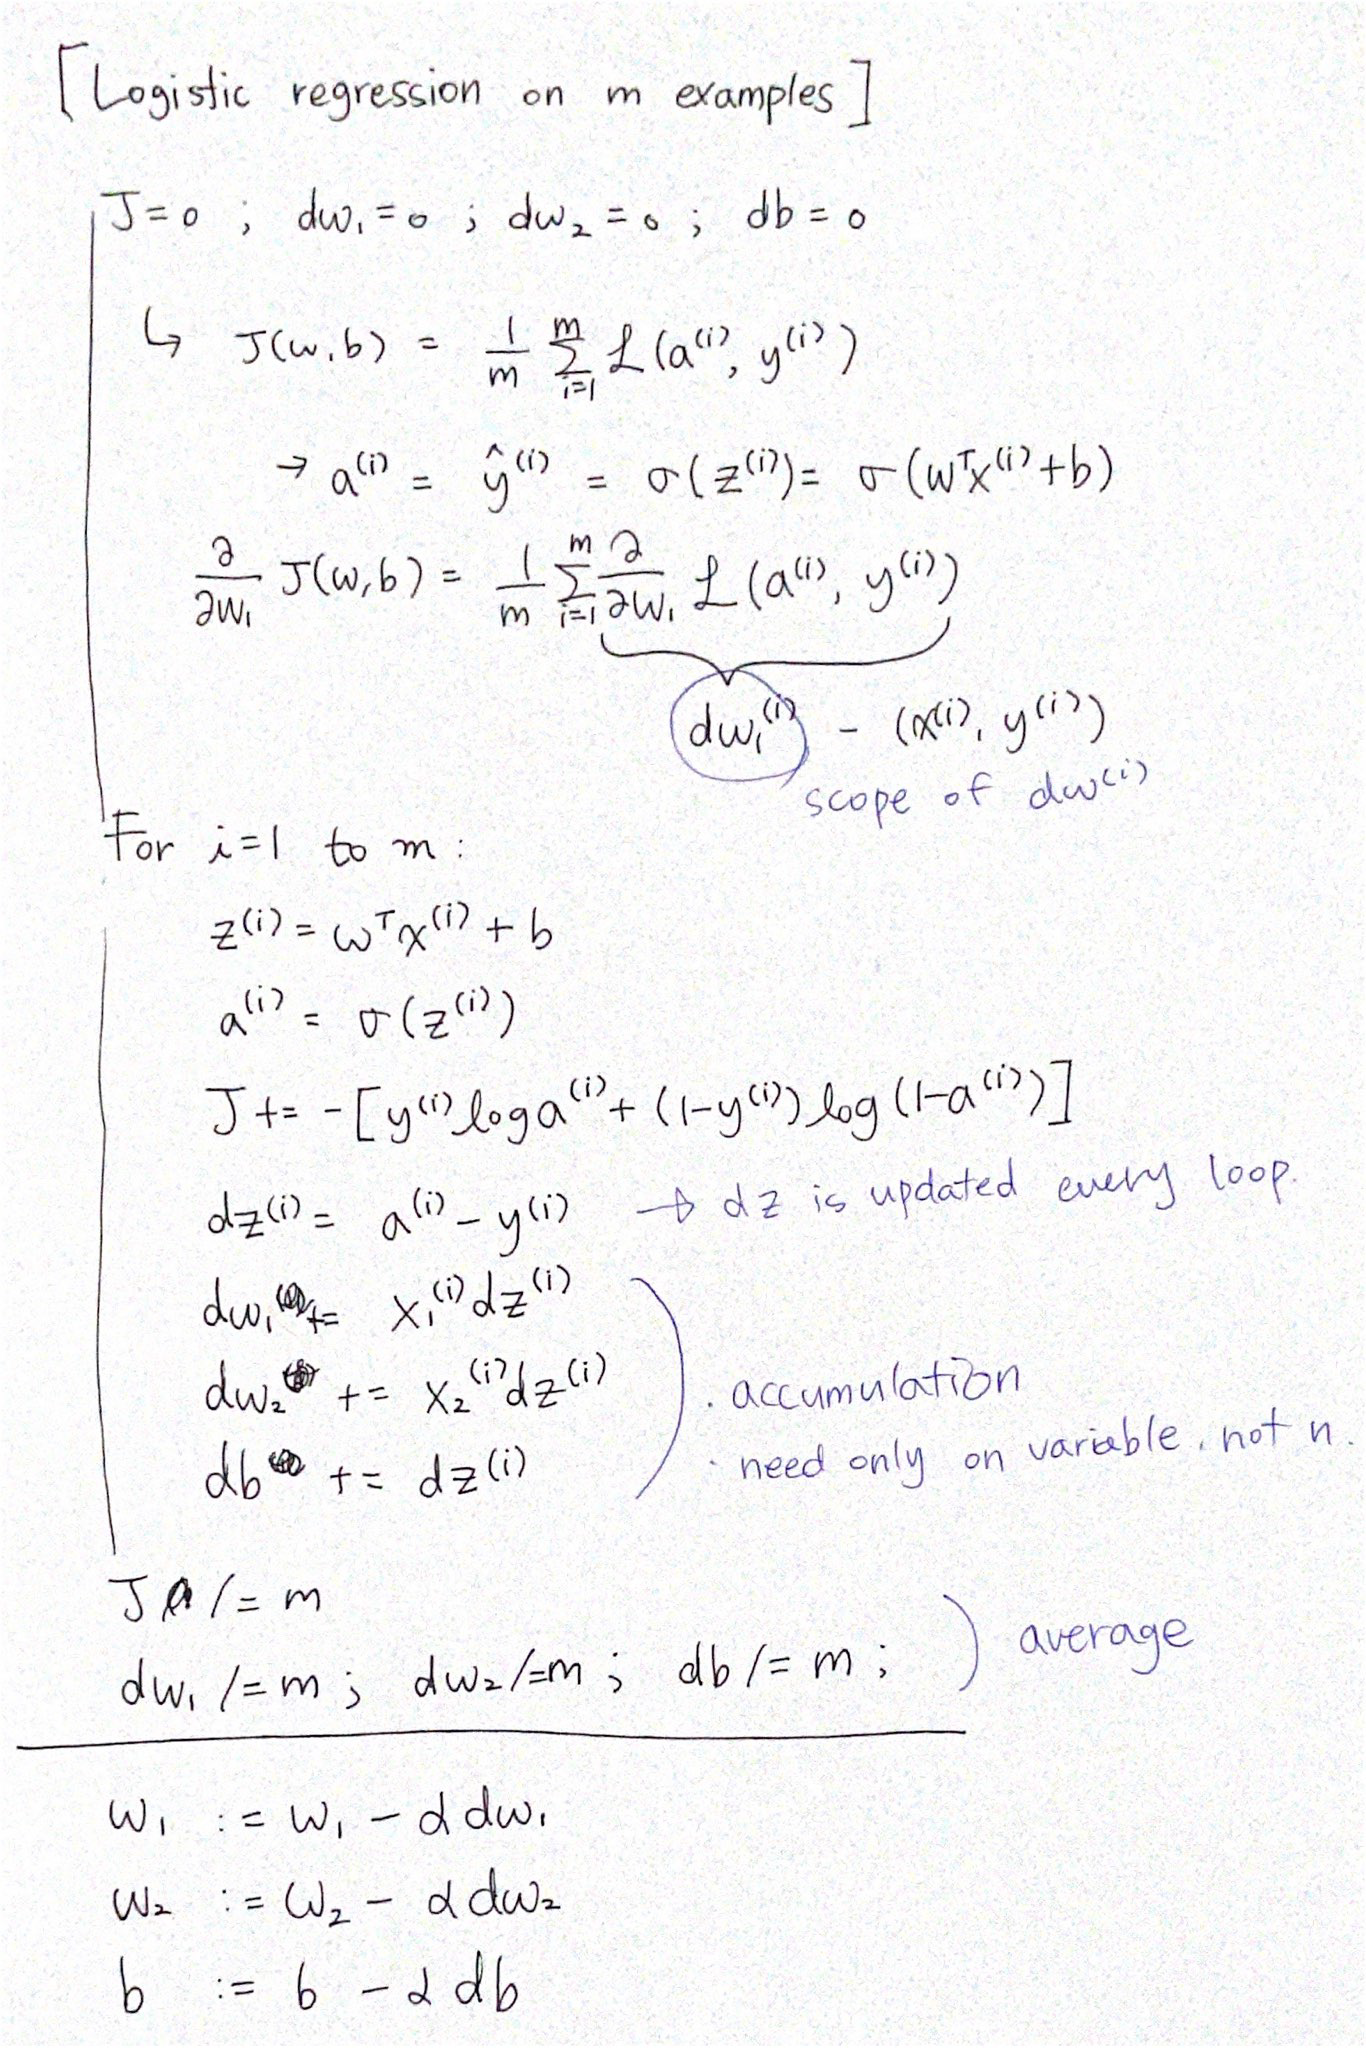 [Logistic regression on m examples]
J=0 ; dw₁=0 ; dw₂=0 ; db=0
↳ J(w,b) = 1/m Σᵢ₌₁ᵐ ℒ(a⁽ⁱ⁾, y⁽ⁱ⁾)
→ a⁽ⁱ⁾ = ŷ⁽ⁱ⁾ = σ(z⁽ⁱ⁾) = σ(wᵀx⁽ⁱ⁾+b)
∂/∂w₁ J(w,b) = 1/m Σᵢ₌₁ᵐ ∂/∂w₁ ℒ(a⁽ⁱ⁾, y⁽ⁱ⁾)
dw₁⁽ⁱ⁾ - (x⁽ⁱ⁾, y⁽ⁱ⁾)
scope of dw⁽ⁱ⁾
For i=1 to m :
z⁽ⁱ⁾ = wᵀx⁽ⁱ⁾ + b
a⁽ⁱ⁾ = σ(z⁽ⁱ⁾)
J += -[y⁽ⁱ⁾ log a⁽ⁱ⁾ + (1-y⁽ⁱ⁾) log (1-a⁽ⁱ⁾)]
dz⁽ⁱ⁾ = a⁽ⁱ⁾ - y⁽ⁱ⁾ → dz is updated every loop.
dw₁ += x₁⁽ⁱ⁾dz⁽ⁱ⁾
dw₂ += x₂⁽ⁱ⁾dz⁽ⁱ⁾ · accumulation
db += dz⁽ⁱ⁾ · need only on variable, not n.
J /= m
dw₁ /= m ; dw₂ /= m ; db /= m ; average
w₁ := w₁ - α dw₁
w₂ := w₂ - α dw₂
b := b - α db